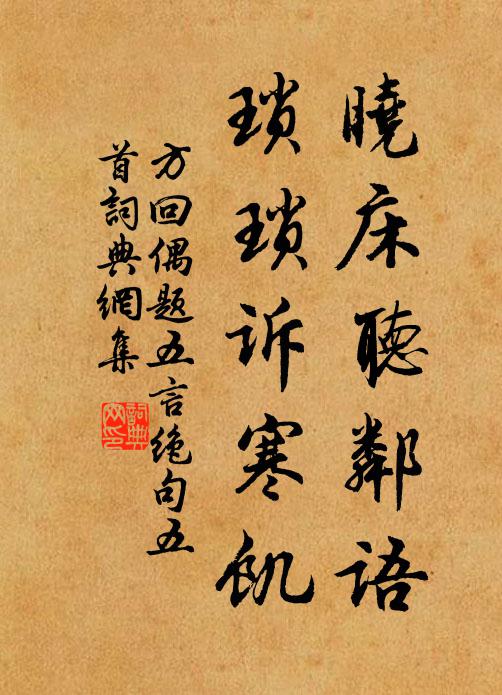 曉床聽鄰語
瑣瑣訴寒飢
方回偶題五言絕句五
首詞典網集
詞典网印